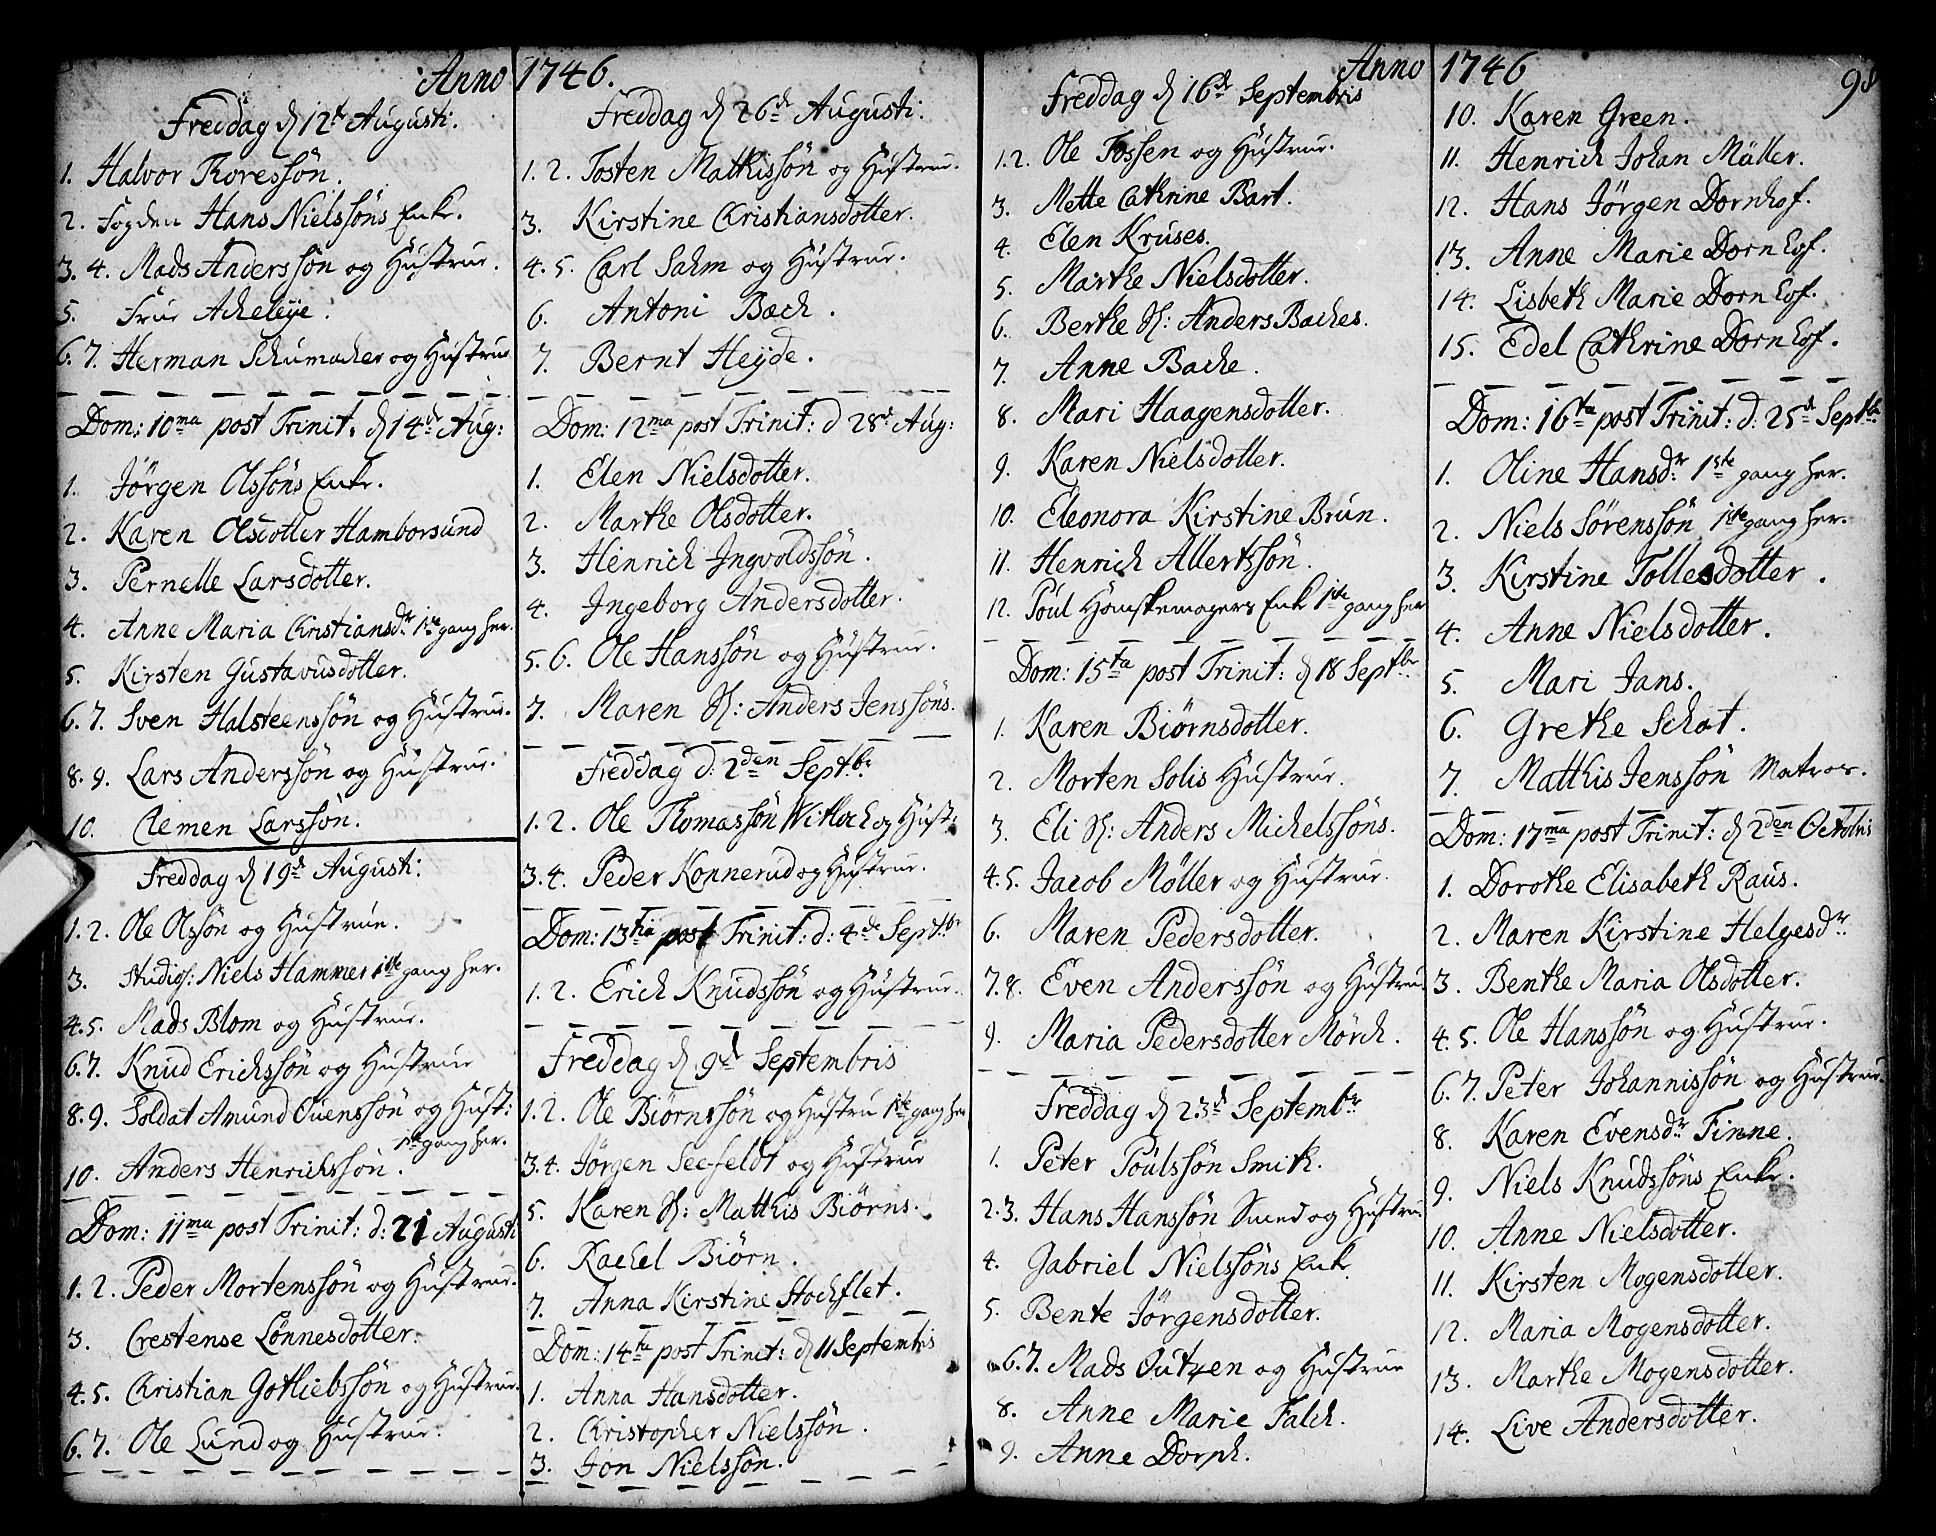 Anno 1746.
Freddag d 12te Augusti.
1. Halvor Thoressön.
2. Fogden Hans Nielssöns Enke.
3. 4. Mads Anderssön og Hustrue.
5. Frue Acheleye.
6. 7. Herman Schumacher og Hustrue
Dom: 10ma post Trinit. d 14de Aug:
1. Jörgen Olssöns Enke.
2. Karen Olsdotter Hamborsund
3. Pernelle Larsdotter.
4. Anne Maria Christiansdr. 1ste gang her.
5. Kirsten Gustavusdotter.
6. 7. Sven Halsteenssön og Hustrue.
8. 9. Lars Anderssön og Hustrue.
10. Clemen Larssön.
Freddag d 19de Augusti:
1. 2. Ole Olssön og Hustrue.
3. Studios: Niels Hammer 1ste gang her.
4. 5. Mads Blom og Hustrue.
6. 7. Knud Erichssön og Hustrue
8. 9. Soldat Amund Ouenssön og Hust:
1ste gang her.
10. Anders Henrichssön.
Dom: 11ma post Trinit: d: 21 Augusti
1. 2. Peder Mortenssön og Hustrue.
3. Crestense Lönnesdotter.
4. 5. Christian Gotliebssön og Hustrue.
6. 7. Ole Lund og Hustrue.
Freddag d 26de Augusti:
1. 2. Tosten Mathissön og Hustrue.
3. Kirstine Christiansdotter.
4. 5. Carl Sahm og Hustrue.
6. Antoni Bæch.
7. Bernt Heyde.
Dom: 12ma post Trinit: d 28de Aug:
1. Elen Nielsdotter.
2. Marthe Olsdotter.
3. Henrich Ingvoldssön.
4. Ingeborg Andersdotter.
5. 6. Ole Hanssön og Hustrue.
7. Maren S: Anders Jenssöns.
Freddag d: 2den Septbr.
1. 2. Ole Thomassön Witloch og Hust:
3. 4. Peder Konnerud og Hustrue.
Dom: 13tia post Trinit: d: 4de Septbr
1. 2. Erich Knudssön og Hustrue.
Freddag d 9de Septembris
1. 2. Ole Biörnssön og Hustru 1ste gang her
3. 4. Jörgen Seefeldt og Hustrue
5. Karen S: Matthis Biörns.
6. Rachel Biörn.
7. Anna Kirstine Stochflet.
Dom: 14ta post Trinit: d 11 Septembris
1. Anna Hansdotter.
2. Christopher Nielssön.
3. Jon Nielssön.
Anno 1746
98
Freddag d 16de Septembris
1. 2. Ole Fossen og Hustrue.
3. Mette Cathrine Bart.
4. Elen Kruses.
5. Marthe Nielsdotter.
6. Berthe S: Anders Baches.
7. Anne Bache.
8. Mari Haagensdotter.
9. Karen Nielsdotter.
10. Eleonora Kirstine Brun.
11. Henrich Allertssön.
12. Poul Handskemagers Enke 1ste gang her
Dom: 15ta post Trinit: d 18 Septbr.
1. Karen Biörnsdotter.
2. Morten Solis Hustrue.
3. Eli S: Anders Michelssöns.
4. 5. Jacob Möller og Hustrue.
6. Maren Pedersdotter.
7. 8. Even Anderssön og Hustru.
9. Maria Pedersdotter Mörch.
Freddag d 23de Septembr
1. Peter Poulssön Smith.
2. 3. Hans Hanssön Smed og Hustru.
4. Gabriel Nielssöns Enke
5. Bente Jörgensdotter.
6. 7. Mads Outzen og Hustrue
8. Anne Marie Falch.
9. Anne Dorph.
10. Karen Green.
11. Henrich Johan Müller.
12. Hans Jörgen Dornhof.
13. Anne Marie Dornhof.
14. Lisbeth Marie Dornhof.
15. Edel Cathrine Dornhof.
Dom: 16ta post Trinit: d: 25de Septbr.
1. Oline Hansdr: 1ste gang her.
2. Niels Sörenssön 1ste gang her.
3. Kirstine Tollesdotter.
4. Anne Nielsdotter.
5. Mari Jans.
6. Grethe Schat.
7. Matthis Jenssön Matros.
Dom: 17ma post Trinit: d 2den Octobris
1. Dorothe Elisabeth Raus.
2. Maren Kirstine Helgesdr
3. Benthe Maria Olsdotter.
4. 5. Ole Hanssön og Hustrue.
6. 7. Peter Johannissön og Hustrue.
8. Karen Evensdr. Finne.
9. Niels Knudssöns Enke.
10. Anne Nielsdotter.
11. Kirsten Mogensdotter.
12. Maria Mogensdotter.
13. Marthe Mogensdotter.
14. Live Andersdotter.